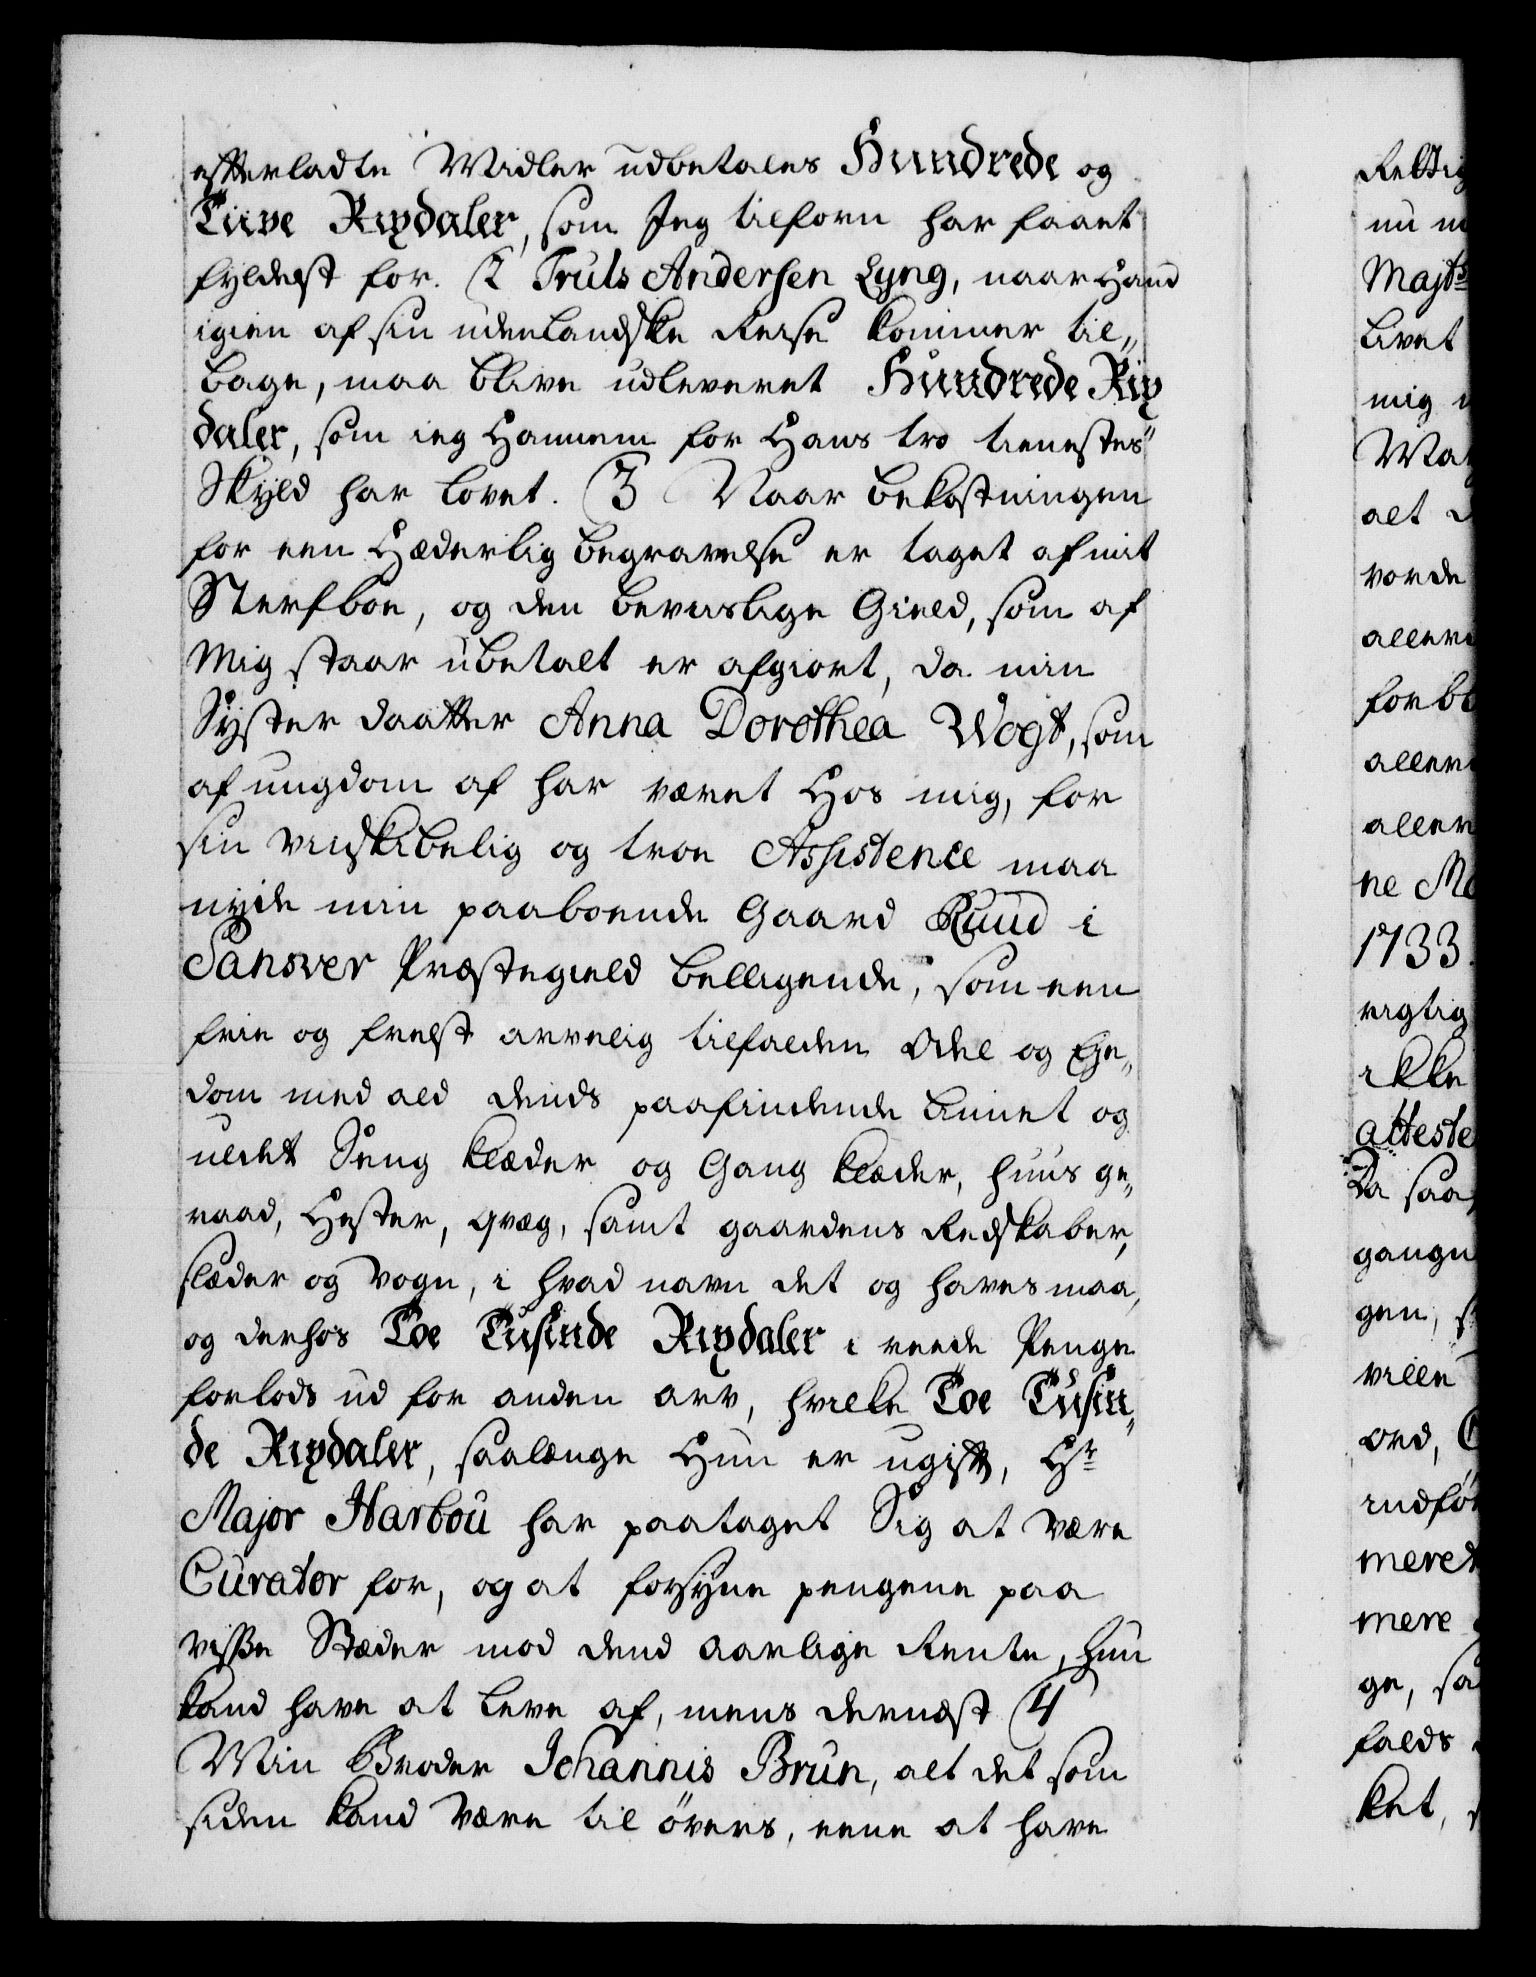 efterladte Midler udbetales Hundrede og
Tiive Rixdaler, som Jeg tilforn har faaet
fyldest for. (2 Truls Andersen Lyng, naar Hand
igien af sin udenlandske Reise kommer til„
bage, maa blive udleveret Hundrede Rix
daler, som ieg Hannem for Hans tro tienestes
Skyld har lovet. (3 Naar bekostningen
for een Hæderlig begravelse er taget af mit
Sterfboe, og den beviislige Gield, som af
Mig staar ubetalt er afgiort, da min
Syster daatter Anna Dorothea Wogt, som
af ungdom af har været Hos mig, for
sin vindskibelig og troe Assistence maa
nyde min paaboende Gaard Ruud i
Sansver Præstegield belligende, som een
frie og frelst arvelig tilfalden Odel og Eje„
dom med ald dends paafindende linnet og
uldet Seng klæder og Gang klæder, huus ge„
raad, Hester, qvæg, samt gaardens Redskaber,
slæder og vogn, i hvad navn det og haves maa,
og derhos Toe Tusinde Rixdaler i reede Penge
forlods ud for anden arv, hvilke Toe Tusin„
de Rixdaler, saalænge Hun er ugift, Hr
Major Harbou har paataget Sig at være
Curator for, og at forsyne pengene paa
visse Stæder mod dend aarlige Rente, hun
kand have at leve af, mens dernæst (4
Min Broder Johannis Brun, alt det som
siden kand være til övers, eene at have
Rettig
nu
Majts
livet
mig
alt
vorde
allern
forbl
allern
allern
ne
1733.
rigtig
ikke
atteste
Da saa
gange
gen,
ville
ord,
indför
mered
mere
ge, sa
falds
ket,